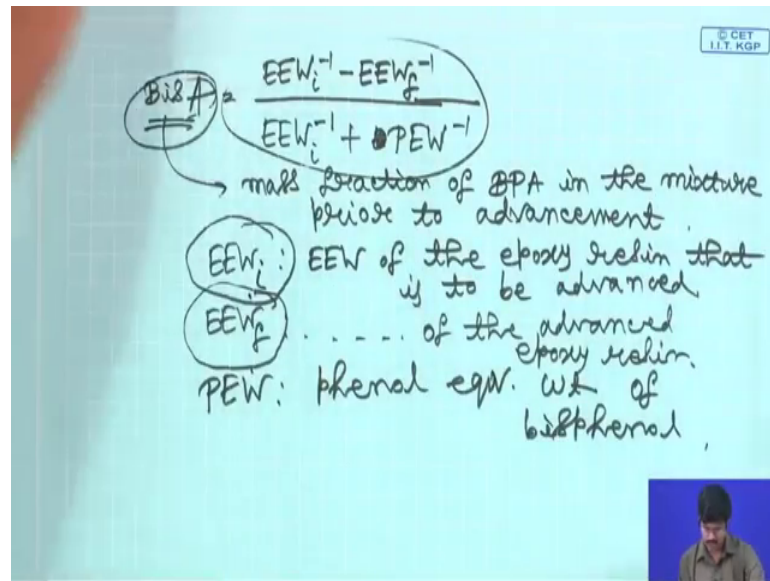 © CET
I.I.T. KGP
BisA = EEWi⁻¹ - EEWf⁻¹
EEWi⁻¹ + PEW⁻¹
mass fraction of BPA in the mixture
prior to advancement.
EEWi : EEW of the epoxy resin that
is to be advanced
EEWf ..... of the advanced
epoxy resin.
PEW: phenol eqv. wt of
bisphenol.